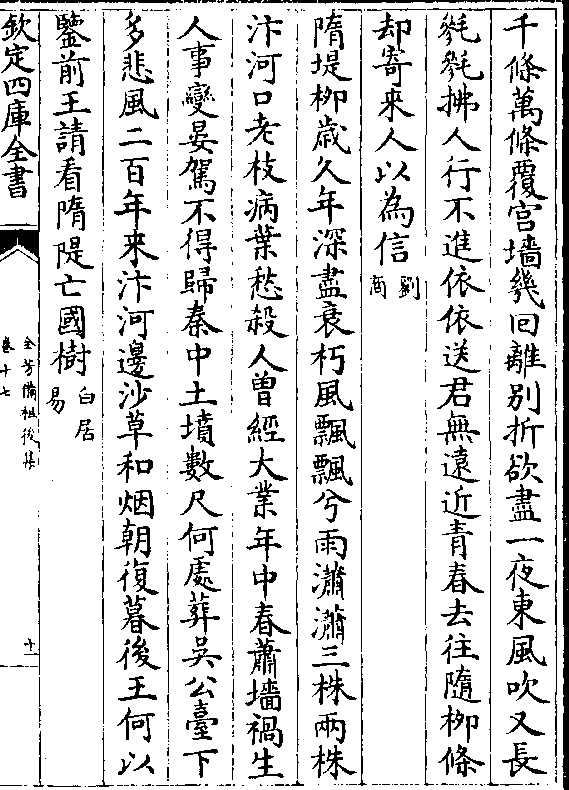 千條萬條覆宫墻幾回離別折欲盡一夜東風吹又長
毿毿拂人行不進依依送君無遠近青春去住隨柳條
却寄來人以為信劉商
隋堤柳歲久年深盡衰朽風飄飄兮雨瀟瀟三株兩株
汴河口老枝病葉愁殺人曾經大業年中春蕭墻禍生
人事變晏駕不得歸秦中土墳數尺何處葬吳公臺下
多悲風二百年來汴河邊沙草和烟朝復暮後王何以
鑒前王請看隋隄亡國樹白居易
欽定四庫全書
全芳備祖後集
卷十七
十